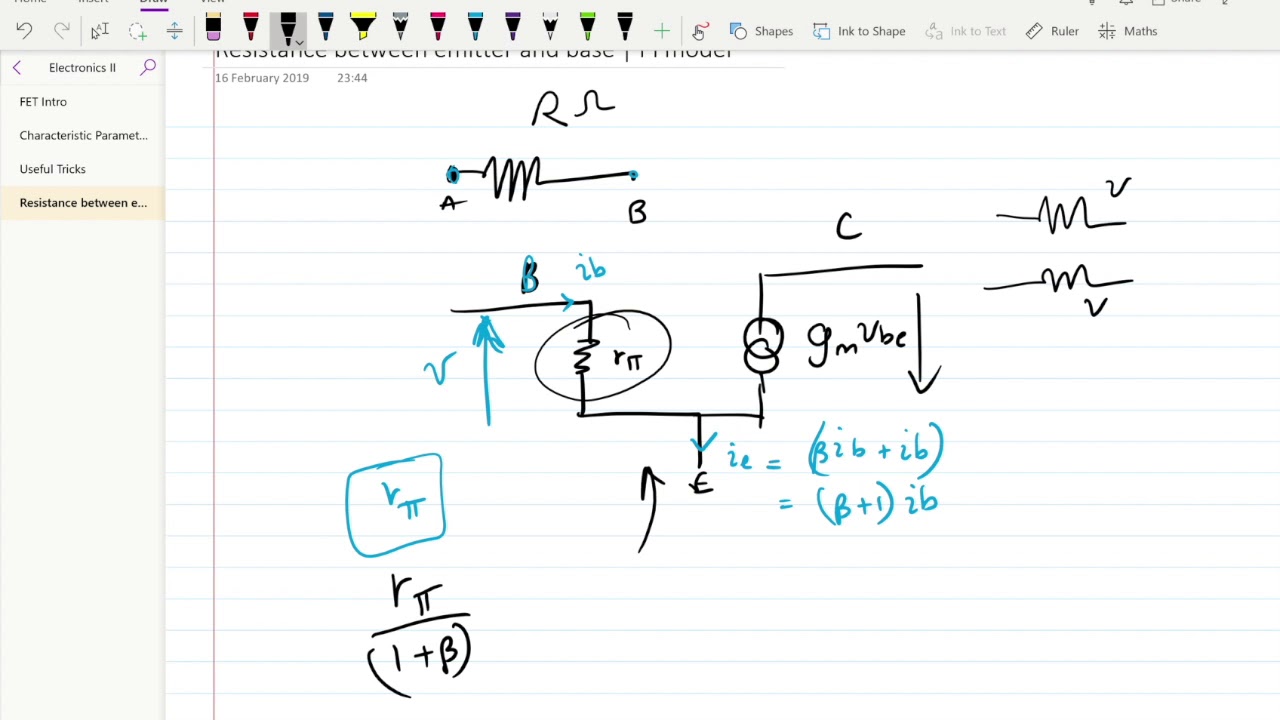 Home Insert Draw View Share
Shapes Ink to Shape Ink to Text Ruler Maths
Electronics II
FET Intro
Characteristic Paramet...
Useful Tricks
Resistance between e...
Resistance between emitter and base | Pi model
16 February 2019 23:44
R Ω
A
B
v
v
C
B
ib
v
rπ
gm vbe
ie = (βib + ib)
= (β+1) ib
E
rπ
rπ
(1 + β)